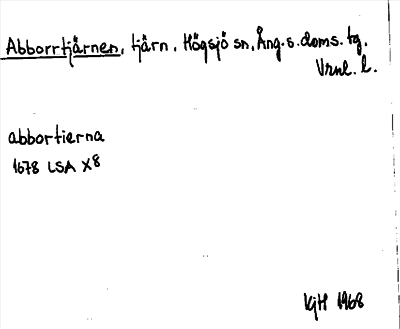 Abborrtjärnen, tjärn. Högsjö sn, Ång. s. doms. tg.
Vrnl. l.
abbortierna
1678 LSA X8
KjH 1968